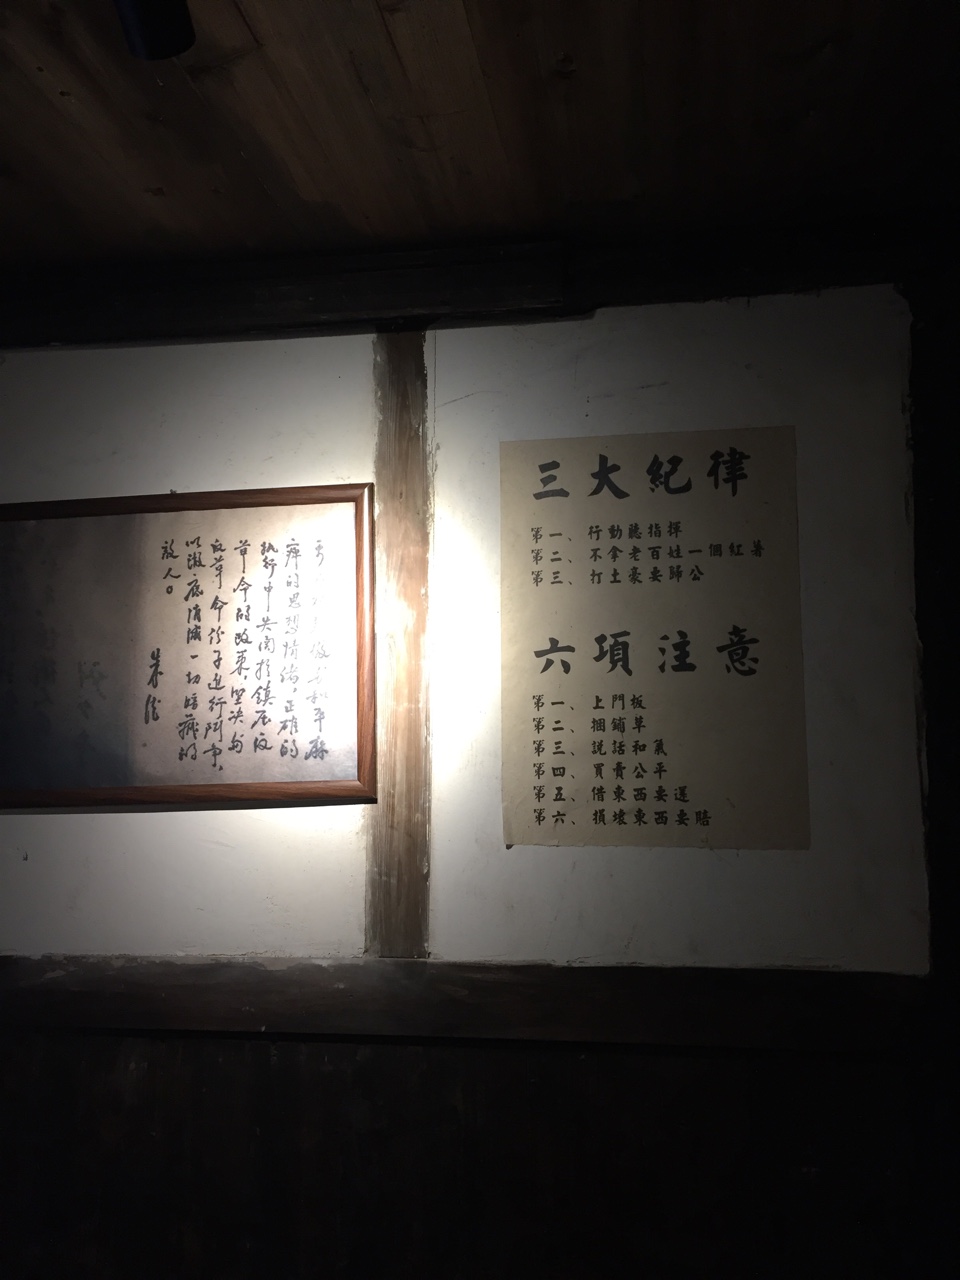 和平麻
痹的思想情绪，正確的
执行中央関於鎮压反
革命的政策，坚决与
反革命份子進行鬥争，
以澈底消滅一切暗藏的
敌人。
朱德
三大紀律
第一、行動聽指揮
第二、不拿老百姓一個紅薯
第三、打土豪要歸公
六項注意
第一、上門板
第二、捆鋪草
第三、説話和氣
第四、買賣公平
第五、借東西要還
第六、損壞東西要賠